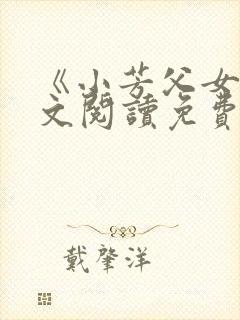 《小芳父女
文閱讀免費
戴肇洋